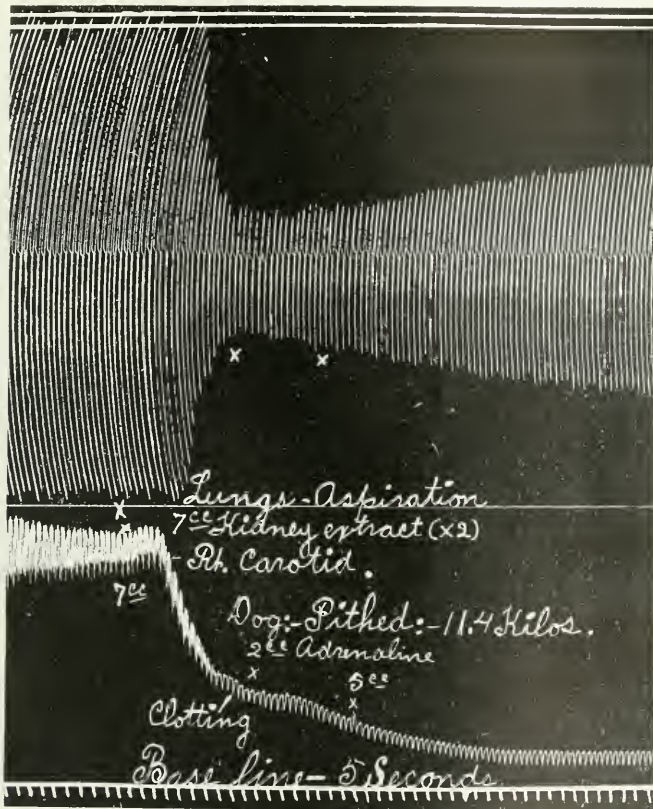 x x
Lungs-Aspiration
x
x 7cc Kidney extract (x2)
- Rt. Carotid.
7cc
Dog:-Pithed:-11.4 Kilos.
2cc Adrenaline
x 5cc
x
Clotting
Base line- 5 Seconds